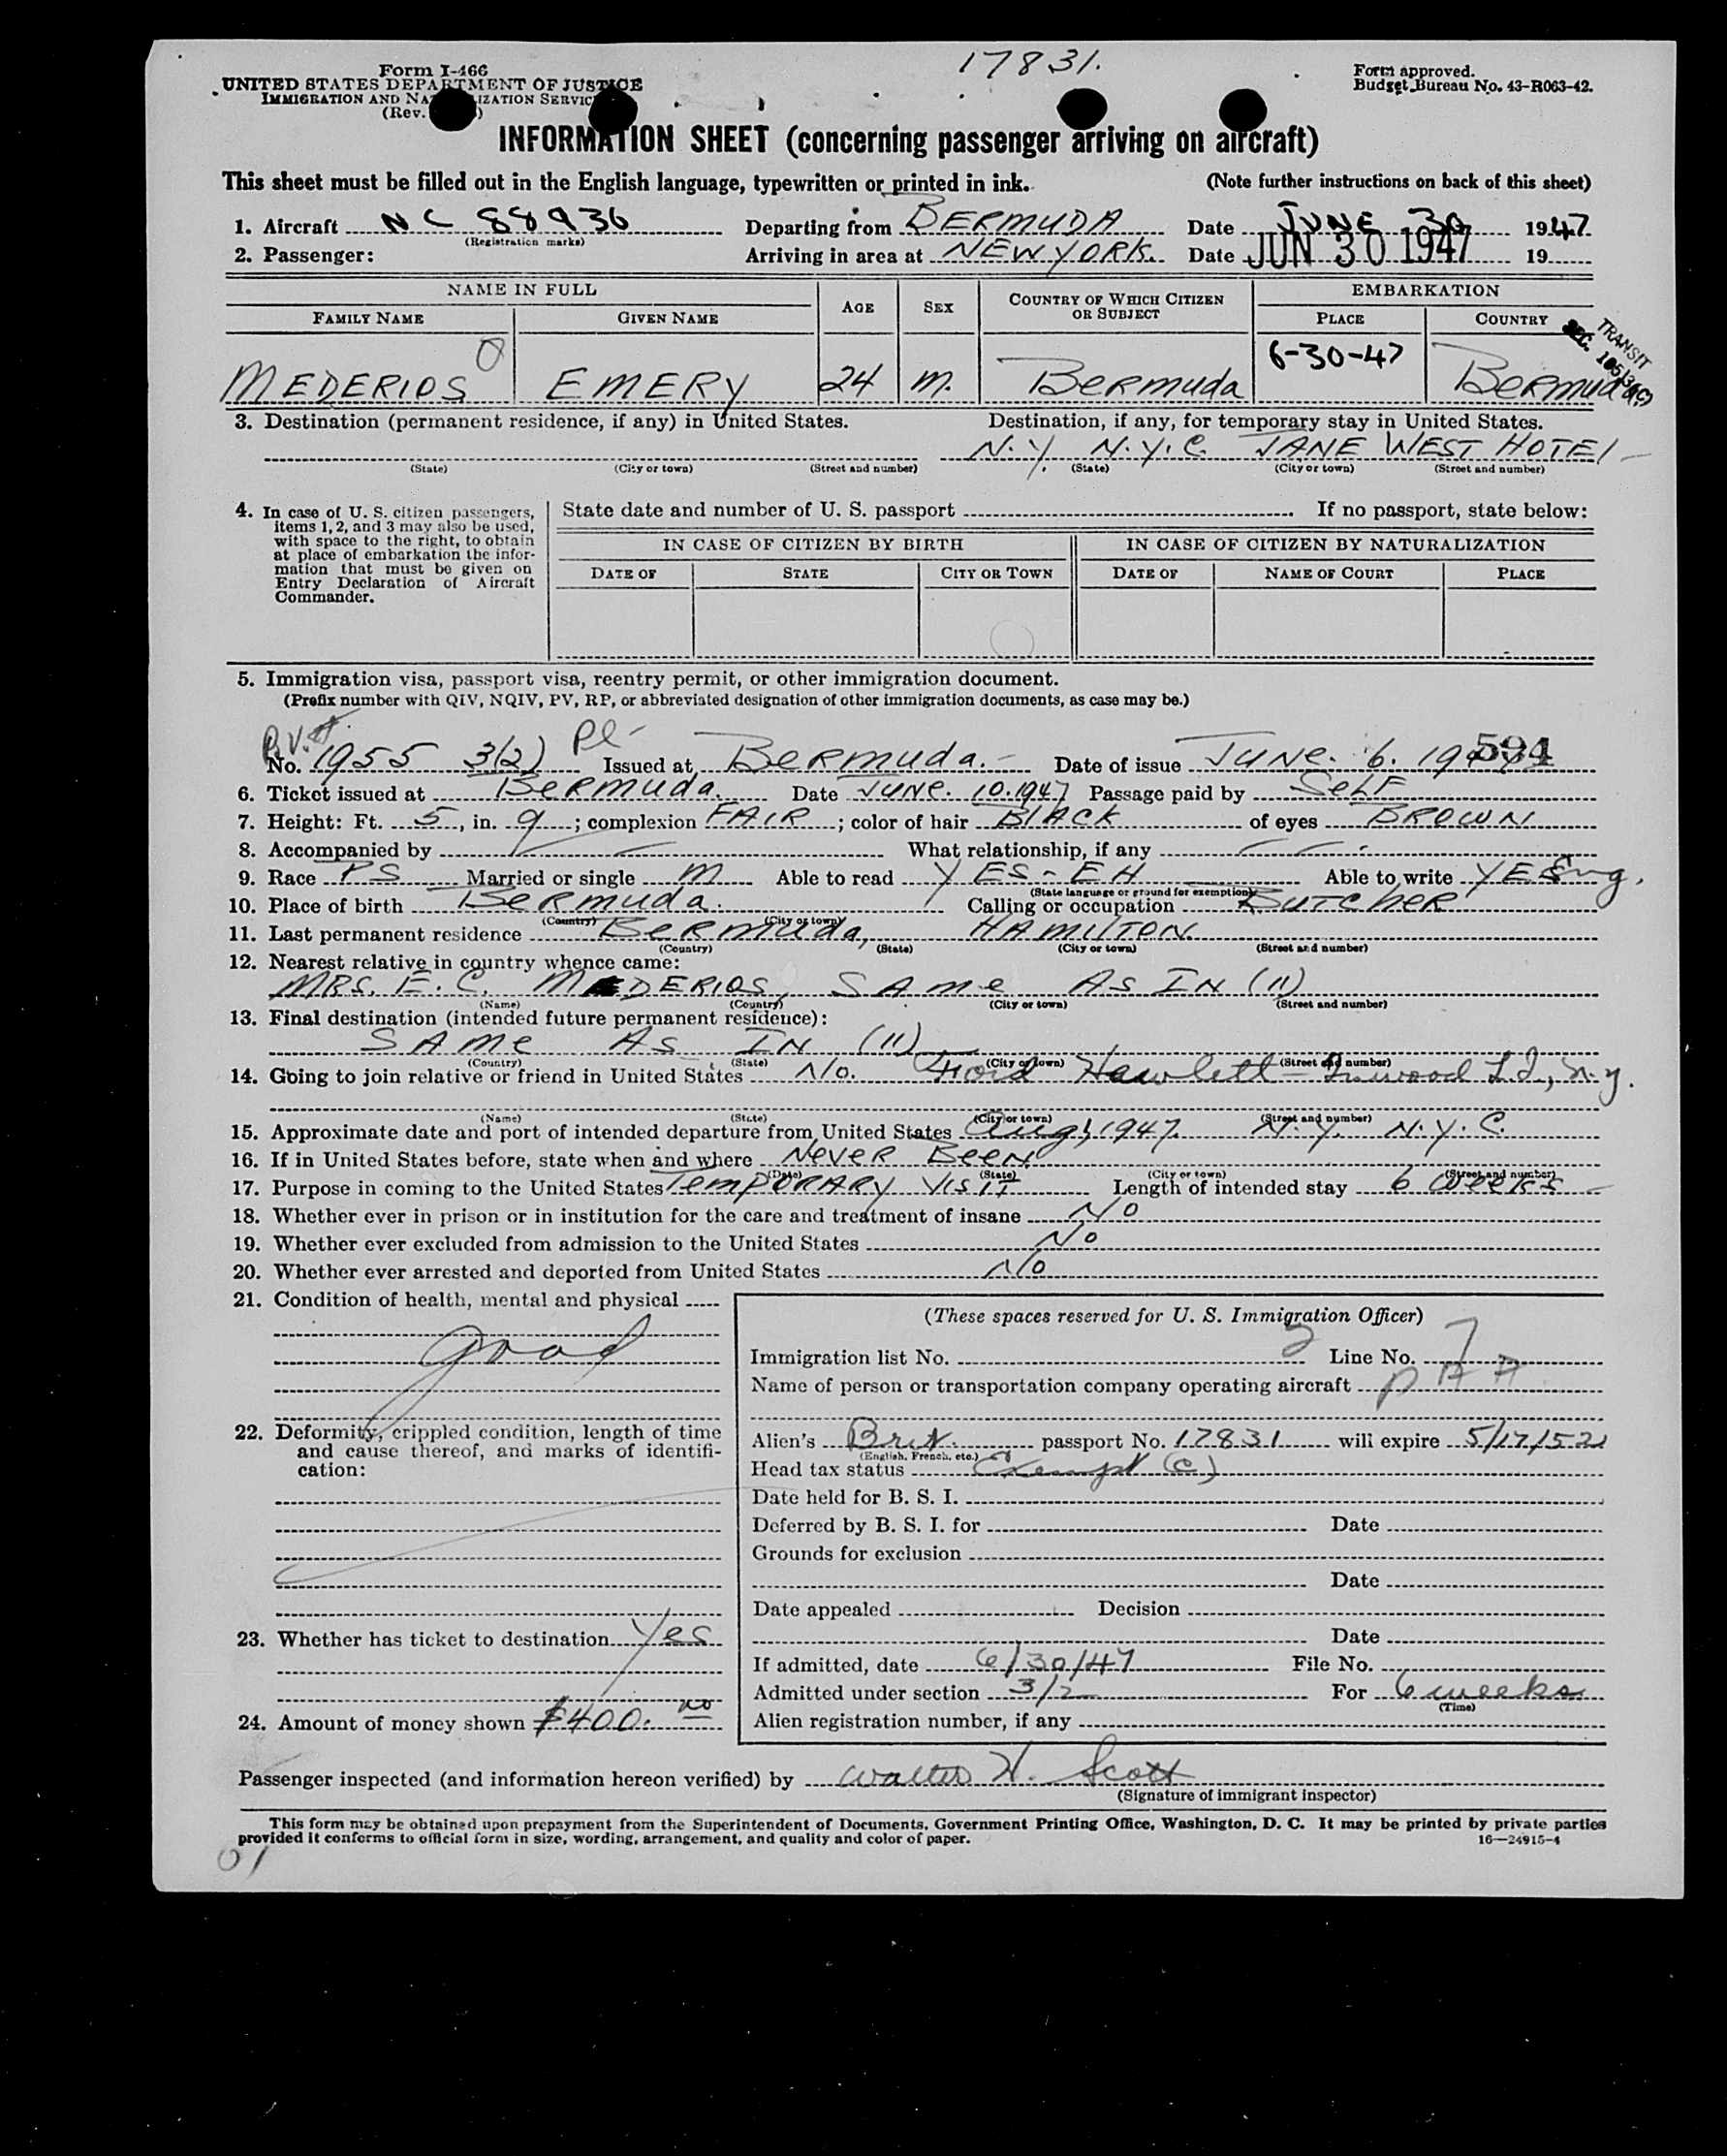 17831.
Form I-466
UNITED STATES DEPARTMENT OF JUSTICE
IMMIGRATION AND NATURALIZATION SERVICE
(Rev. )
Form approved.
Budget Bureau No. 43-R063-42.
INFORMATION SHEET (concerning passenger arriving on aircraft)
This sheet must be filled out in the English language, typewritten or printed in ink. (Note further instructions on back of this sheet)
1. Aircraft NC 88936 Departing from BERMUDA Date JUNE 30 1947
(Registration marks)
2. Passenger: Arriving in area at NEW YORK. Date JUN 30 1947 19
NAME IN FULL AGE SEX COUNTRY OF WHICH CITIZEN OR SUBJECT EMBARKATION
FAMILY NAME GIVEN NAME PLACE COUNTRY
TRANSIT
SEC.
6-30-47
MEDERIOS EMERY 24 M. BERMUDA BERMUDA
3. Destination (permanent residence, if any) in United States. Destination, if any, for temporary stay in United States.
N.Y. N.Y.C. JANE WEST HOTEL
(State) (City or town) (Street and number) (State) (City or town) (Street and number)
4. In case of U. S. citizen passengers, items 1, 2, and 3 may also be used, with space to the right, to obtain at place of embarkation the information that must be given on Entry Declaration of Aircraft Commander.
State date and number of U. S. passport If no passport, state below:
IN CASE OF CITIZEN BY BIRTH IN CASE OF CITIZEN BY NATURALIZATION
DATE OF STATE CITY OR TOWN DATE OF NAME OF COURT PLACE
5. Immigration visa, passport visa, reentry permit, or other immigration document.
(Prefix number with QIV, NQIV, PV, RP, or abbreviated designation of other immigration documents, as case may be.)
P.V. Pl-
594
No. 1955 3(2) Issued at BERMUDA. Date of issue JUNE. 6. 19
6. Ticket issued at BERMUDA. Date JUNE. 10.1947 Passage paid by SELF
7. Height: Ft. 5, in. 9; complexion FAIR; color of hair BLACK of eyes BROWN
8. Accompanied by What relationship, if any
9. Race PS Married or single M Able to read YES - EH Able to write YES Eng.
(State language or ground for exemption)
10. Place of birth BERMUDA. Calling or occupation BUTCHER
(Country) (City or town)
11. Last permanent residence BERMUDA, HAMILTON
(Country) (State) (City or town) (Street and number)
12. Nearest relative in country whence came:
MRS. E. C. MEDERIOS, SAME AS IN (11)
(Name) (Country) (City or town) (Street and number)
13. Final destination (intended future permanent residence):
SAME AS IN (11)
(Country) (State) (City or town) (Street and number)
14. Going to join relative or friend in United States No. Hewlett - Inwood L.I., N.Y.
(Name) (State) (City or town) (Street and number)
15. Approximate date and port of intended departure from United States Aug 1, 1947. N.Y. N.Y.C.
16. If in United States before, state when and where NEVER BEEN
(Date) (State) (City or town) (Street and number)
17. Purpose in coming to the United States TEMPORARY VISIT Length of intended stay 6 WEEKS
18. Whether ever in prison or in institution for the care and treatment of insane No
19. Whether ever excluded from admission to the United States No
20. Whether ever arrested and deported from United States No
21. Condition of health, mental and physical
good
22. Deformity, crippled condition, length of time and cause thereof, and marks of identification:
23. Whether has ticket to destination Yes
24. Amount of money shown $400. no
(These spaces reserved for U. S. Immigration Officer)
Immigration list No. 2 Line No. 7
Name of person or transportation company operating aircraft PAA
Alien's Brit. passport No. 17831 will expire 5/17/52
(English, French, etc.)
Head tax status Exempt (c)
Date held for B. S. I.
Deferred by B. S. I. for Date
Grounds for exclusion
Date
Date appealed Decision
Date
If admitted, date 6/30/47 File No.
Admitted under section 3/2 For 6 weeks
(Time)
Alien registration number, if any
Passenger inspected (and information hereon verified) by Walter H. Scott
(Signature of immigrant inspector)
This form may be obtained upon prepayment from the Superintendent of Documents, Government Printing Office, Washington, D. C. It may be printed by private parties
provided it conforms to official form in size, wording, arrangement, and quality and color of paper. 16—24915-4
01